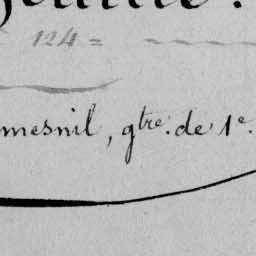 124 =
mesnil, gtre. de 1e.